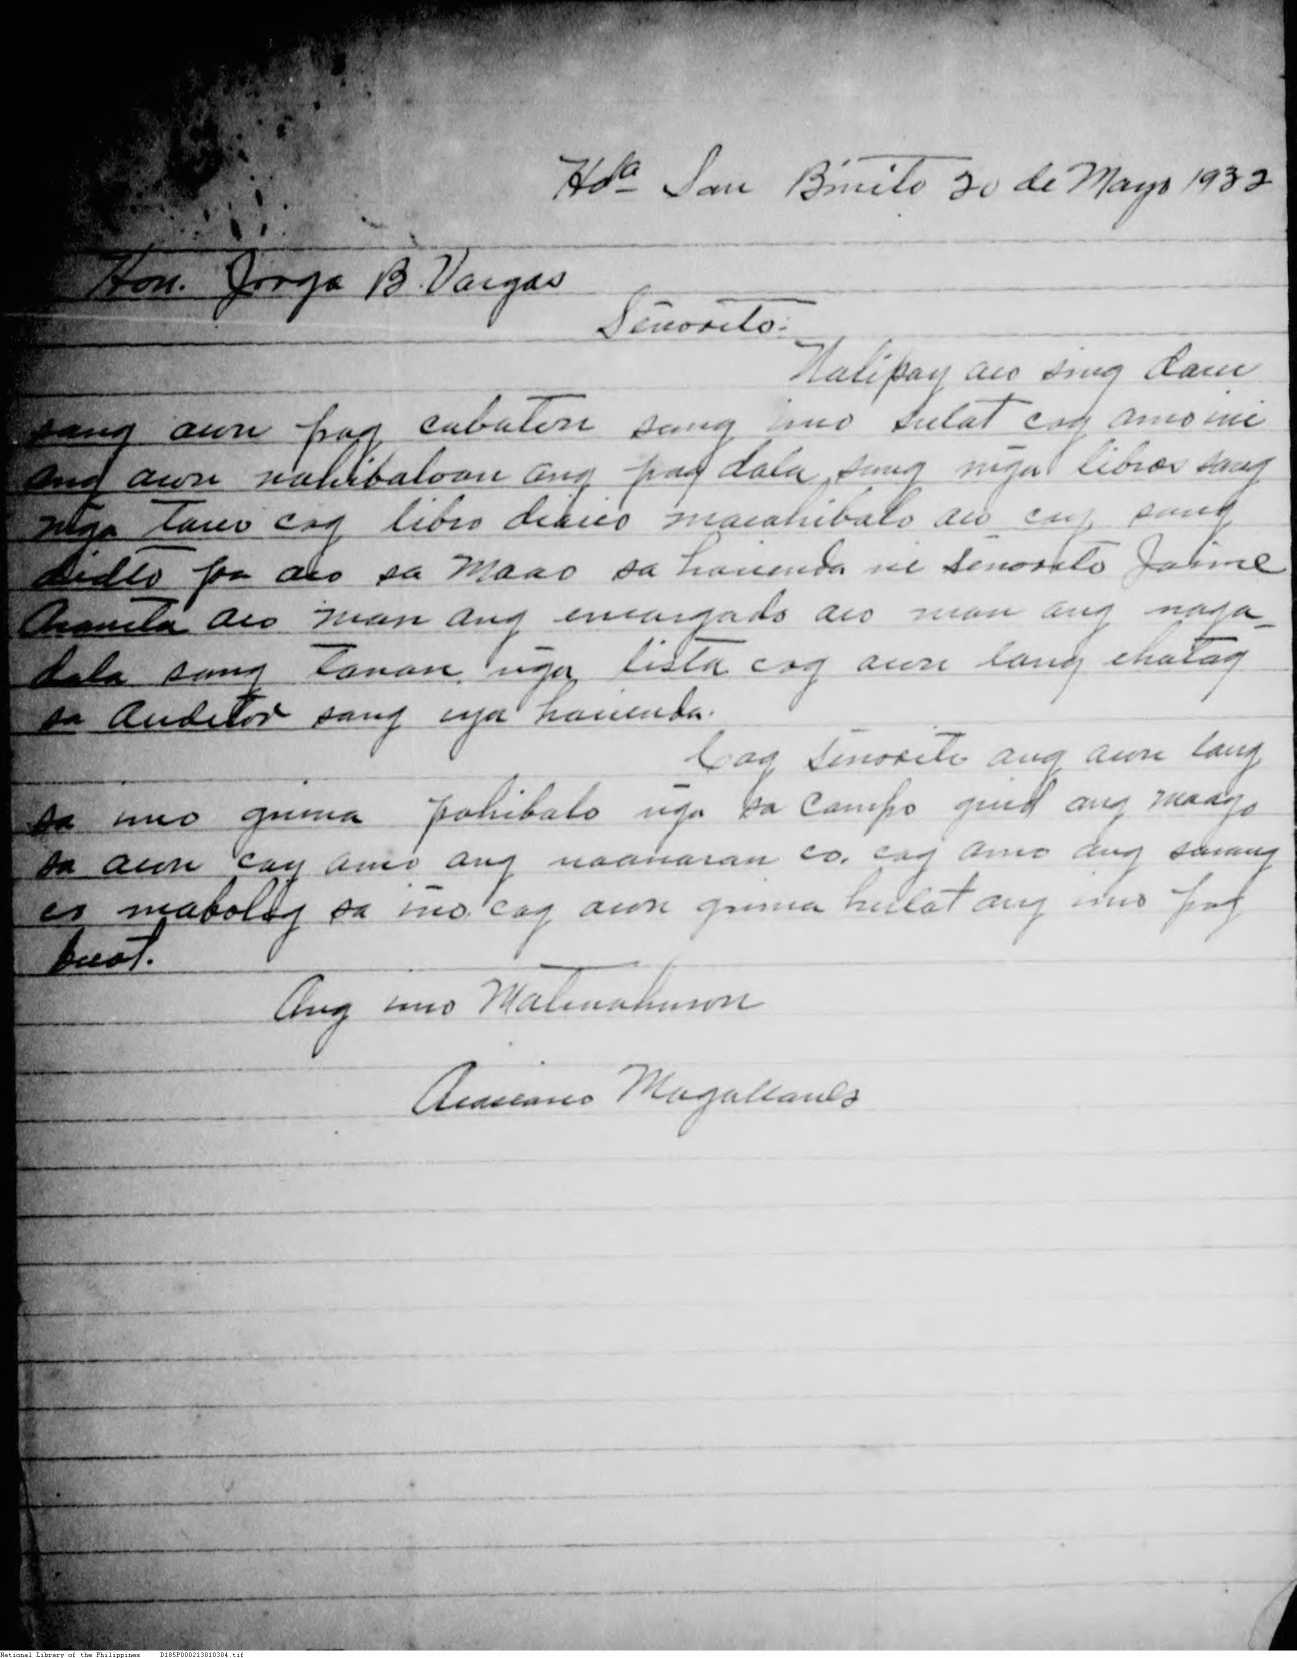 Hda San Binito 20 de Mayo 1932
Hon. Jorge B. Vargas
Señorito:
Nalipay aco sing daw
sang acon pag cabaton sang imo sulat cag amo ini
ang acon nahibaloan ang pag dala sang mga libros sang
mga tawo cag libro diario macahibalo aco cay sang
didto pa aco sa Maao sa hacienda ni Señorito Jaime
Araneta aco man ang encargado aco man ang naga_
dala sang tanan nga lista cag acon lang ihatag
sa Auditor sang iya hacienda.
Cag Señorito ang acon lang
sa imo ginna pahibalo nga sa Campo guid ang maayo
sa acon cay amo ang naanaran co. cag amo ang sarang
co mabolig sa imo. cag acon ginna hulat ang imo pag
buot.
Ang imo Matinahuron
Magallanes
National Library of the Philippines D185P000213810304.tif